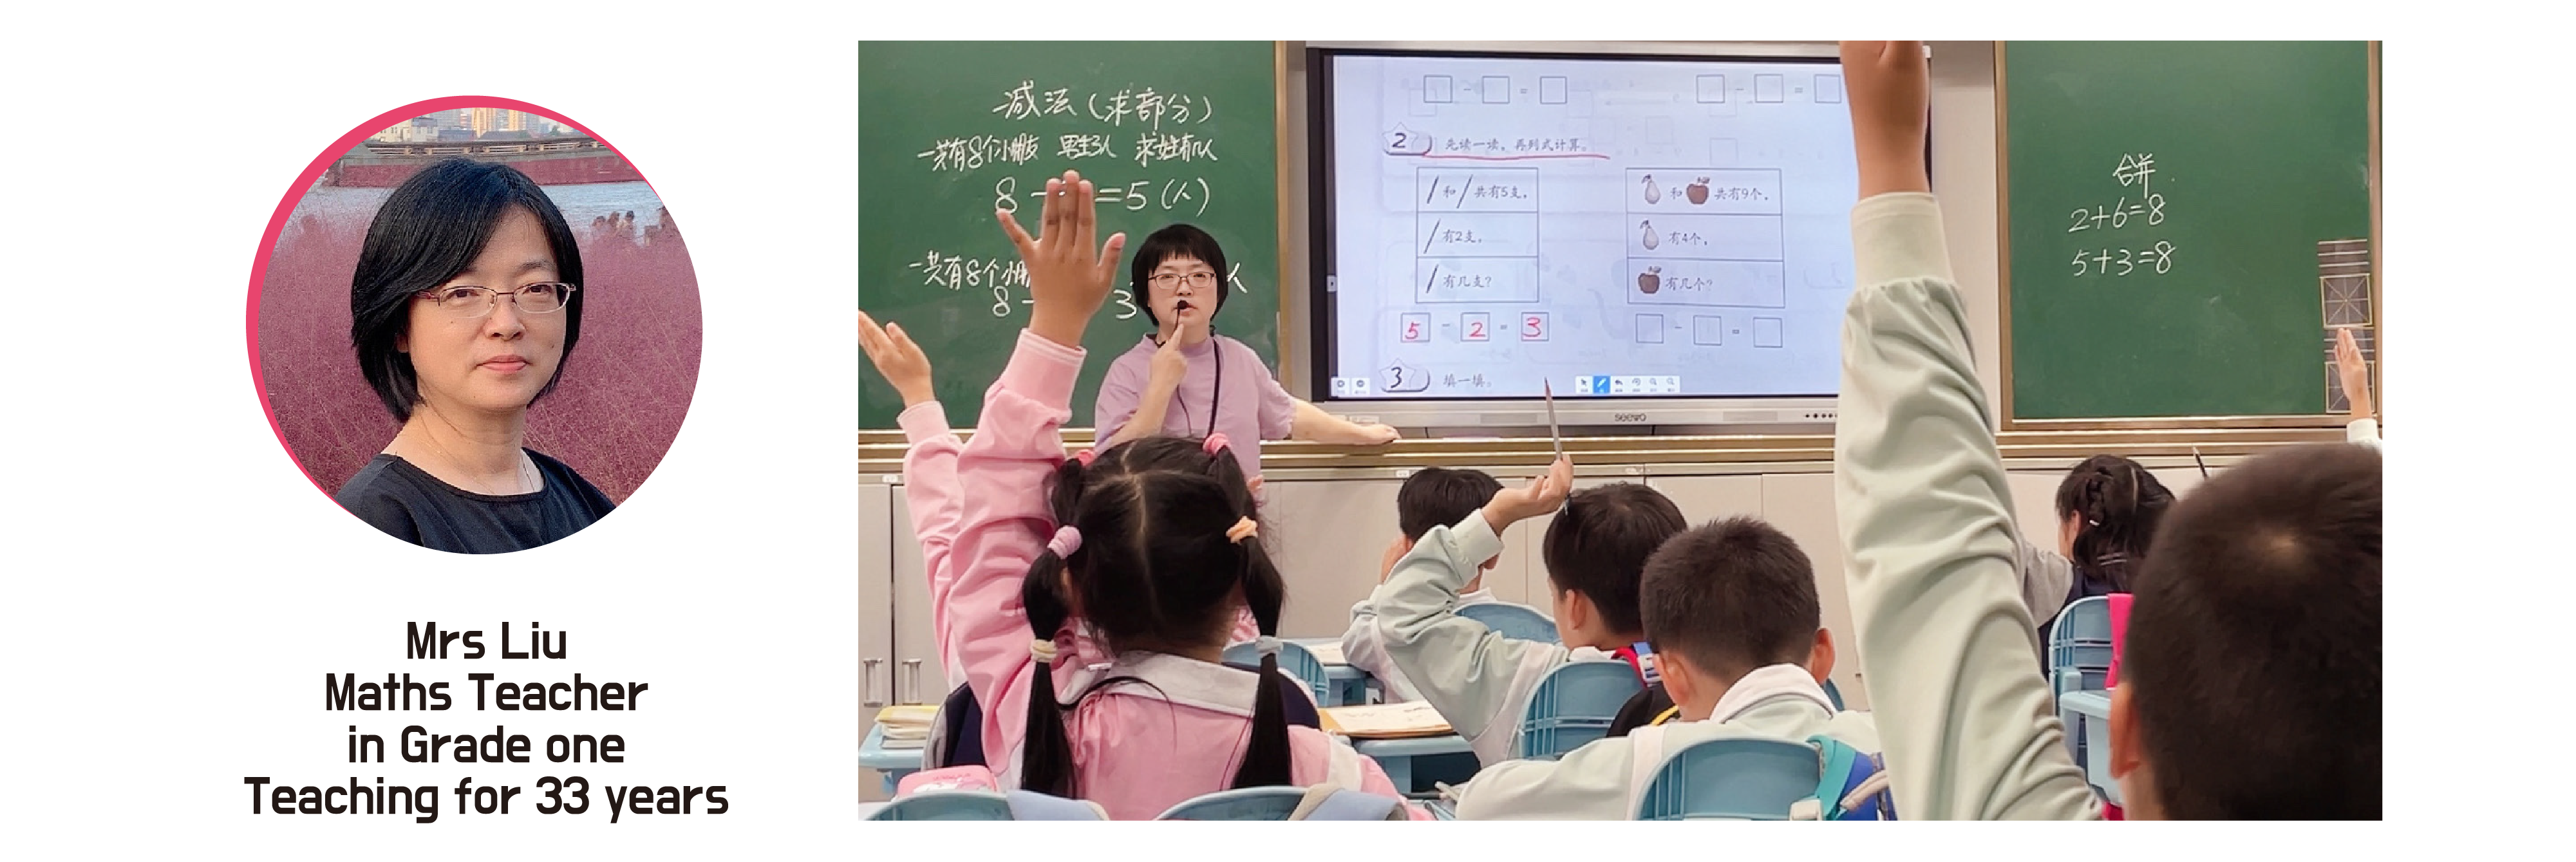 Mrs Liu
Maths Teacher
in Grade one
Teaching for 33 years
减法（求部分）
一共有8个小朋友 男生3人 求女生有几人
8 - = 5（人）
一共有8个小朋
8 - 3 人
- = - =
2 先读一读，再列式计算。
和 共有5支。
有2支。
有几支？
5 - 2 = 3
和 共有9个。
有4个。
有几个？
- =
3 填一填。
seewo
合并
2+6=8
5+3=8